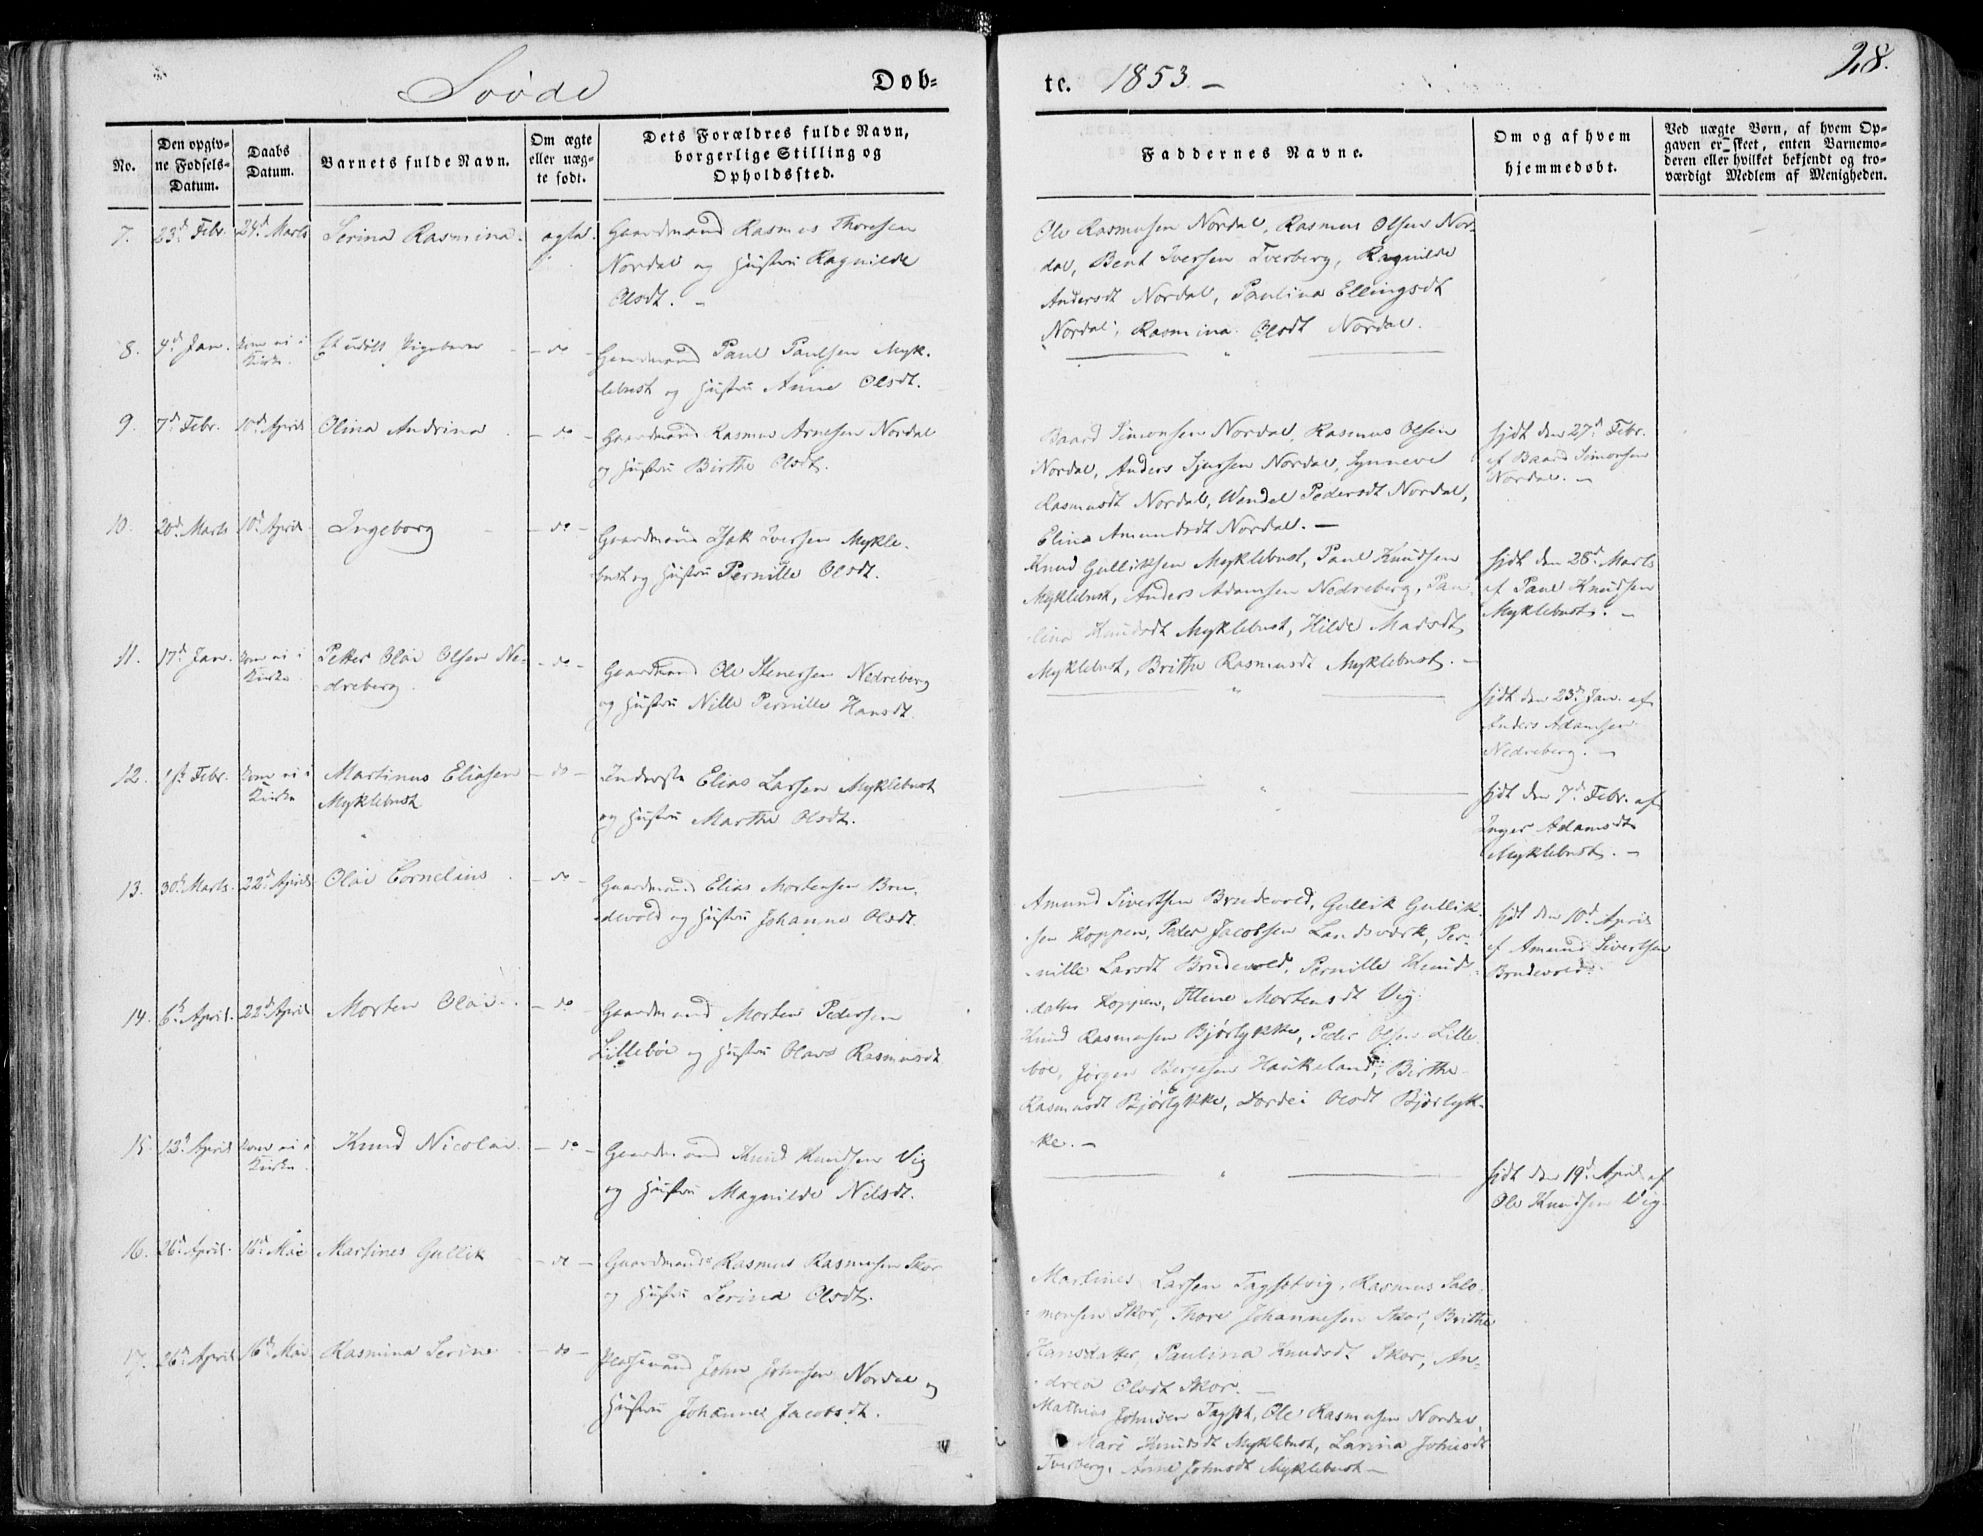 Døb=
te. 1853. –
28.
No.
Den opgiv-
ne Fødsels-
Datum.
Daabs
Datum.
Barnets fulde Navn.
Om ægte
eller uæg-
te født.
Dets Forældres fulde Navn,
borgerlige Stilling og
Opholdssted.
Faddernes Navne.
Om og af hvem
hjemmedøbt.
Ved uægte Børn, af hvem Op-
gaven er skeet, enten Barnemo-
deren eller hvilket bekjendt og tro-
værdigt Medlem af Menigheden.
7.
23d Febr.
24d Marts
Serina Rasmina.
Gaardmand Rasmus Thoresen
Nordal og Hustru Ragnilde
Olsdt. –
Ole Rasmusen Nordal, Rasmus Olsen Nor-
dal, Bent Iversen Tverberg, Ragnilde
Andersdt Nordal, Paulina Ellingsdt
Nordal, Rasmina Olsdt Nordal.
8.
4d Jan.
kom ei i
Kirke.
Et udøbt Pigebarn
– do –
Gaardmand Paul Paulsen Myk-
lebust og Hustru Anne Olsdt.
9.
7d Febr.
10d April
Olina Andrina
– do –
Gaardmand Rasmus Arnesen Nordal
og Hustru Birthe Olsdt.
Baard Simonsen Nordal, Rasmus Olsen
Nordal, Anders Sjursen Nordal, Synneve
Rasmusdt Nordal, Wendel Pedersdt Nordal,
Elina Amundsdt Nordal. –
hjdt den 27d Febr.
af Baard Simonsen
Nordal. –
10.
20d Marts
10d April
Ingeborg
– do –
Gaardmand Isak Iversen Mykle-
bust og Hustru Pernille Olsdt.
Knud Gulliksen Myklebust, Paul Knudsen
Myklebust, Anders Adamsen Nedreberg, Pau-
lina Knudsdt Myklebust, Hilde Madsdt
Myklebust, Brithe Rasmusdt Myklebust. –
hjdt den 28d Marts
af Paul Knudsen
Myklebust. –
11.
17d Jan.
kom ei i
Kirke
Petter Olai Olsen Ne-
dreberg.
– do –
Gaardmand Ole Stenersen Nedreberg
og Hustru Nille Pernille Hansdt.
hjdt den 23d Jan. af
Anders Adamsen
Nedreberg. –
12.
1st Febr.
kom ei i
Kirke
Martinus Eliasen
Myklebust
– do –
Inderste Elias Larsen Myklebust
og Hustru Marthe Olsdt.
hjdt den 7d Febr. af
Inger Adamsdt
Myklebust. –
13.
30d Marts.
22d April
Olai Cornelius
– do –
Gaardmand Elias Mortensen Bru-
devold og Hustru Johanne Olsdt.
Amund Sivertsen Brudevold, Gullik Gullik-
sen Koppen, Peder Jacobsen Landsværk, Per-
nille Larsdt Brudevold, Pernille Knuds-
datter Koppen, Eline Mortensdt Vig.
hjdt den 10d April
af Amund Sivertsen
Brudevold.
14.
6d April.
22d April
Morten Olai.
– do –
Gaardmand Morten Pedersen
Lillebøe og Hustru Olave Rasmusdt
Knud Rasmusen Bjørlykke, Peder Olsen Lille-
bøe, Jørgen Børgesen Haukeland, Birthe
Rasmusdt Bjørlykke, Dordei Olsdt Bjørlyk-
ke. –
15.
13d April
kom ei i
Kirke
Knud Nicolai.
– do –
Gaardmand Knud Knudsen Vig
og Hustru Magnilde Nilsdt.
hjdt den 19d April af
Ole Knudsen Vig
16.
26d April.
16d Mai
Martines Gullik
– do –
Gaardmand Rasmus Rasmusen Skor
og Hustru Serina Olsdt.
Martines Larsen Tagsetvig, Rasmus Salo-
monsen Skor, Thore Johannesen Skor, Brithe
Hansdatter, Paulina Knudsdt Skor, An-
drea Olsdt Skor. –
17.
26d April
16d Mai
Rasmina Serine
– do –
Pladsmand John Johnsen Nordal og
Hustru Johanne Jacobsdt.
Mathias Johnsen Tagset, Ole Rasmusen Nordal,
Mari Knudsdt Myklebust, Larina Johnsdt
Tverberg, Anne Johnsdt Myklebust –